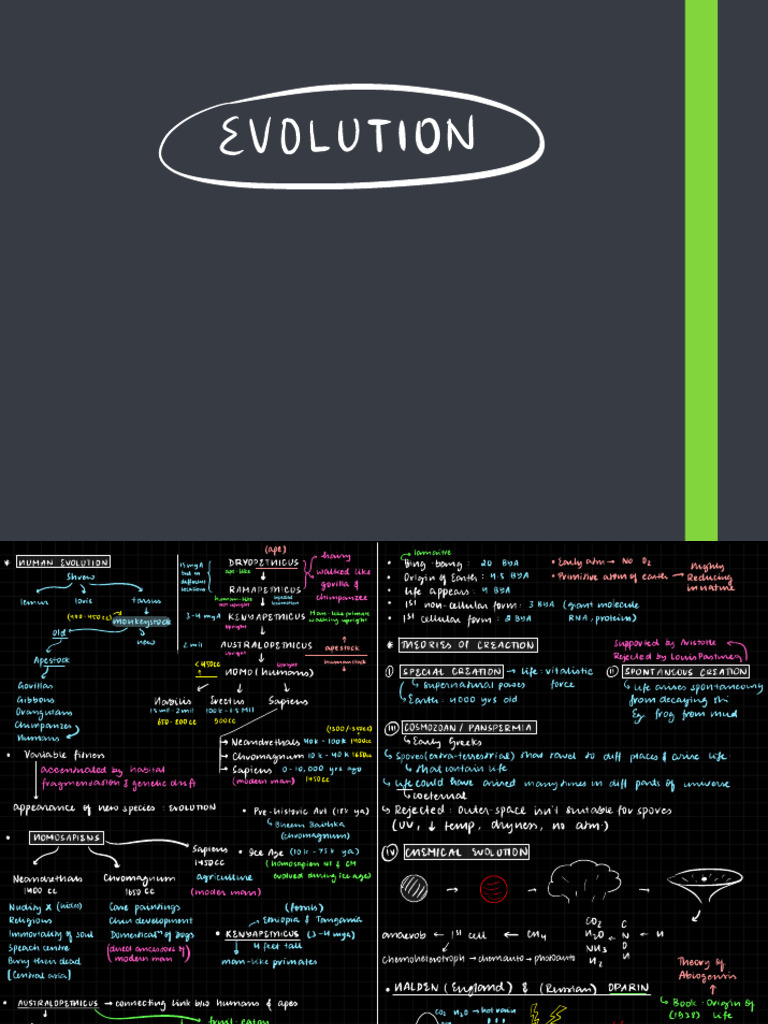 EVOLUTION
* HUMAN EVOLUTION
Shrew
lemur loris tarsus
monkeystock
old new
Apestock
Gorillas
Gibbons
Orangutans
Chimpanzes
Humans
• Variable fitness
accentuated by habital
fragmentation & genetic drift
appearance of new species : EVOLUTION
• HOMOSAPIENS
Neandrethals
1400 cc
Chromagnum
1650 cc
Sapiens
1450cc
agriculture
(modern man)
Nudity X (hides)
Religious
Immortality of soul
Speach centre
Bury their dead
[Central asia]
Cave paintings
Chin development
Domestical" of dogs
(direct ancestors of
modern man)
• AUSTRALOPETHICUS → connecting link b/w humans & apes
fruit-eaten
(ape)
15 mya
but in
different
locations
DRYOPETHICUS
ape-like
hairy
walked like
gorilla &
chimpanzee
RAMAPETHICUS
human-like
not upright
3-4 mya KENYAPETHICUS
upright
Man-like primate
walking upright
2 mil AUSTRALOPETHICUS
upright
apestock
humanstock
<450cc
upright
HOMO (humans)
Habilis Erectus Sapiens
650-800cc 900cc
Neandrethals 40k - 100k 1400cc
Chromagnum 10k - 40k 1650cc
Sapiens 0-10,000 yrs ago
(modern man) 1450cc
• Pre-historic Art (18k ya)
Bheem Baithka
(chromagnum)
• Ice Age (10k - 75k ya)
evolved during ice age)
(fossils)
Ethiopia & Tanzania
• KENYAPETHICUS (3-4 mya)
4 feet tall
man-like primates
lamaitre
• Bing-bang : 20 BYA
• Origin of Earth : 4.5 BYA
• Life appears : 4 BYA
• 1st non-cellular form : 3 BYA (giant molecule
RNA, proteins)
• 1st cellular form : 2 BYA
• Early atm → No O2
• Primitive atm of earth → Highly
Reducing
in nature
* THEORIES OF CREACTION
Supported by Aristotle
Rejected by Louis Pasture
(i) SPECIAL CREATION → life : vitalistic
force
Supernatural power
Earth : 4000 yrs old
(ii) SPONTANEOUS CREATION
life arises spontaneously
from decaying
Eg frog from mud
(iii) COSMOZOAN / PANSPERMIA
Early Greeks
Spores (extra-terrestrial) that travel to diff places & arive life
that contain life
life could have arised many times in diff parts of universe
coeternal
Rejected : outer-space isn't suitable for spores
(UV, ↓ temp, dryness, no atm)
(iv) CHEMICAL EVOLUTION
CO2
H2O
NH3
H2
C
N
O
H
H
anaerob ← 1st cell ← CH4
Theory of
Abiogenesis
• HALDEN (England) & (Russian) OPARIN
Book : Origin of
(1938) life
CO2 H2O → hot rain